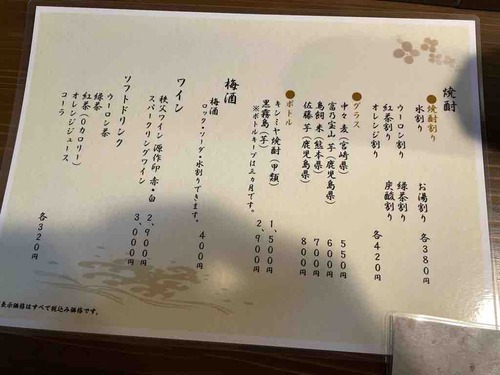 焼酎
●焼酎割り
水割り　お湯割り　各380円
ウーロン割り　緑茶割り
紅茶割り　炭酸割り
オレンジ割り　各420円
●グラス
中々 麦(宮崎県)　550円
富乃宝山 芋(鹿児島県)　600円
鳥飼 米(熊本県)　700円
佐藤 芋(鹿児島県)　800円
●ボトル
キンミヤ焼酎(甲類)　1,500円
黒霧島(芋)　2,900円
※ボトルキープは三ヶ月です。
梅酒
梅酒　400円
ロック・ソーダ・水割りできます。
ワイン
秩父ワイン 源作印 赤・白　2,900円
スパークリングワイン　3,000円
ソフトドリンク
ウーロン茶
緑茶
紅茶(0カロリー)
オレンジジュース
コーラ　各320円
表示価格はすべて税込み価格です。